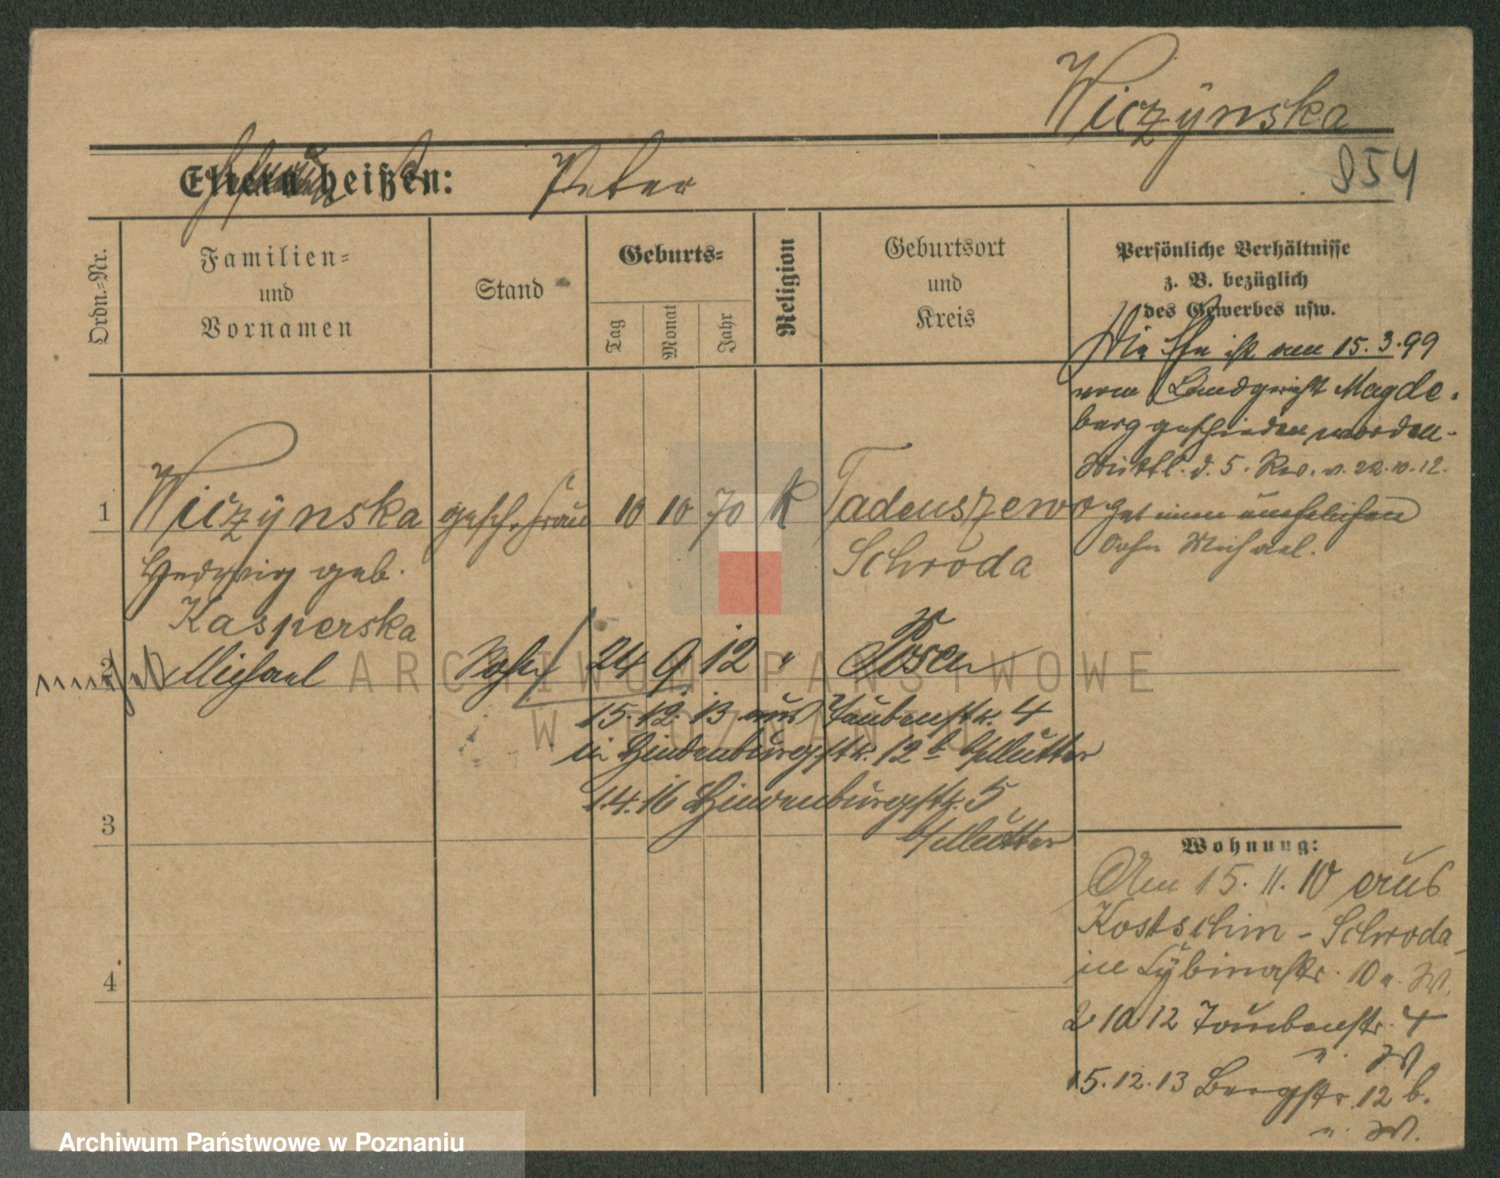 Wiczÿnska
854
Eltern heißen: Peter
Ordn.-Nr.
Familien=
und
Vornamen
Stand
Geburts=
Tag
Monat
Jahr
Religion
Geburtsort
und
Kreis
Persönliche Verhältnisse
z. B. bezüglich
des Gewerbes usw.
Die Ehe ist am 15.3.99
vom Landgericht Magde-
burg geschieden worden.
d. 5. Rev. v. 22.10.12.
Hat einen unehelichen
Sohn Michael.
1 Wiczÿnska gesch. Frau 10 10 70 k Tadeuszewo
Hedwig geb. Schroda
Kasperska
2 Michael Sohn 24 9 12 " Posen
15.12.13 aus Taubenstr. 4
in Hindenburgstr. 12b
1.4.16 Hindenburgstr. 5
3
4
Wohnung:
Am 15.11.10 aus
Kostschin - Schroda
in Cybinastr. 10 a. W.
2 10 12 Taubenstr. 4
W
15.12.13 Bergstr. 12 b.
W.
ARCHIWUM PAŃSTWOWE
W POZNANIU
Archiwum Państwowe w Poznaniu